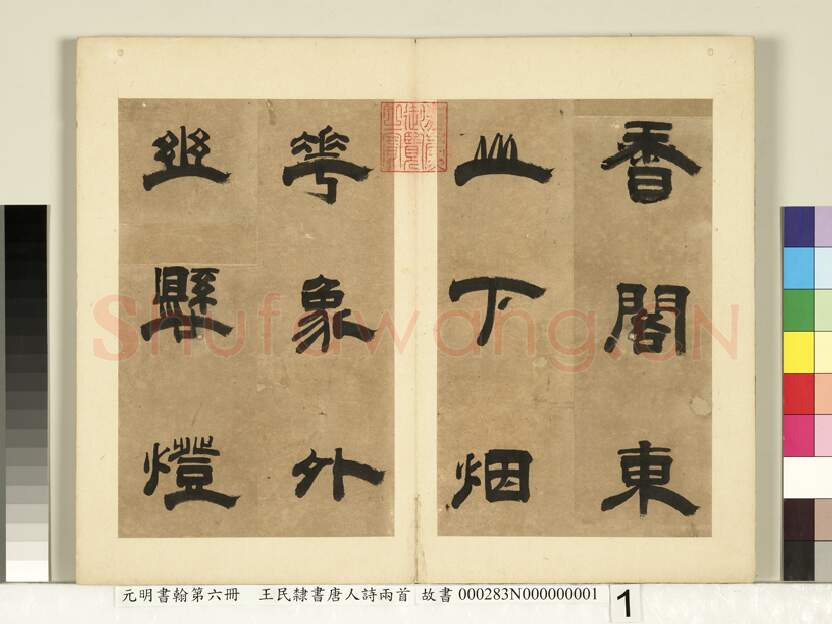 香閣東
山下烟
華象外
幽懸燈
Shufawang.CN
元明書翰第六冊 王民隸書唐人詩兩首 故書 000283N000000001
1